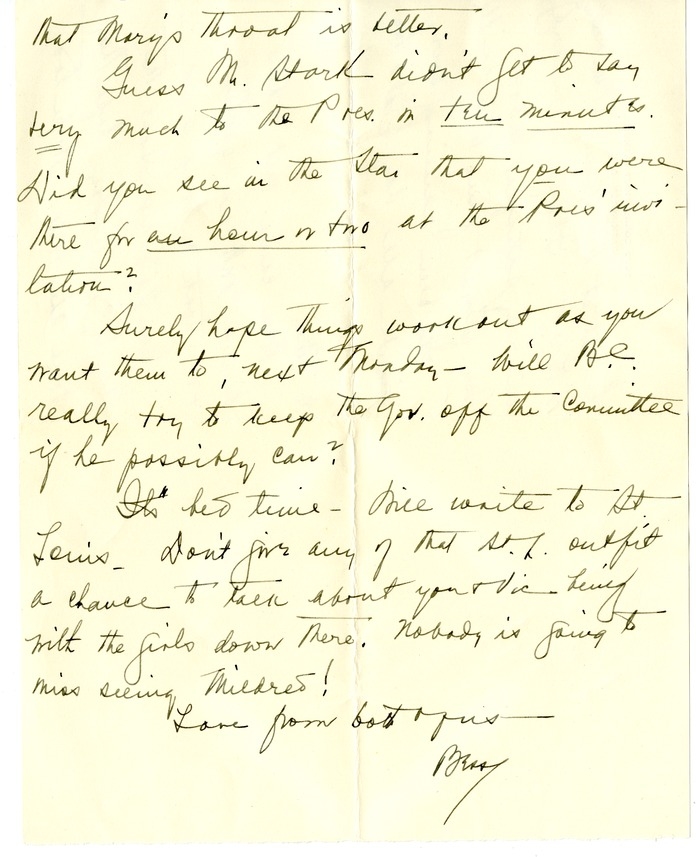 that Mary's throat is better.
Guess M. Stark didn't get to say
very much to the Pres. in ten minutes.
Did you see in the Star that you were
there for an hour or two at the Pres' invi-
tation?
Surely hope things work out as you
want them to, next Monday - Will B.C.
really try to keep the Gov. off the Committee
if he possibly can?
It's bed time - Will write to St.
Louis - Don't give any of that St. L. outfit
a chance to talk about you & Vic being
with the girls down there. Nobody is going to
miss seeing Mildred!
Love from both of us -
Bess